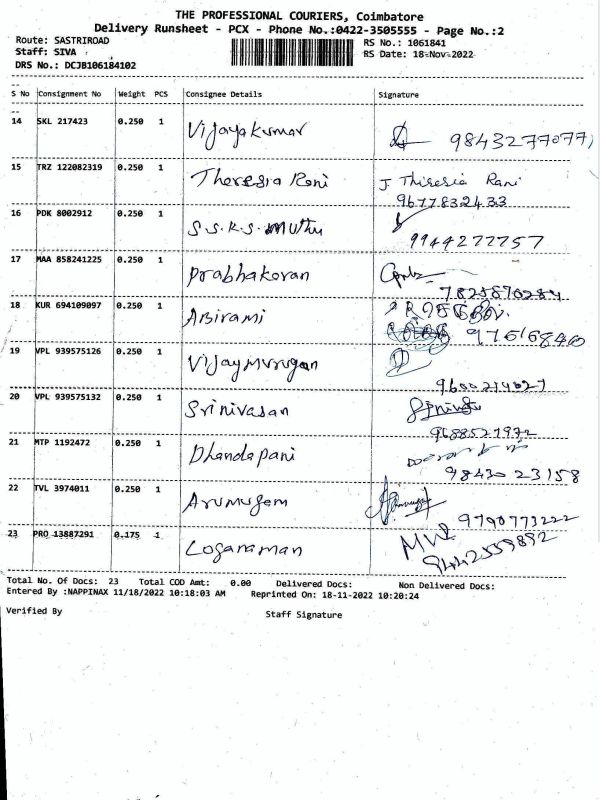 THE PROFESSIONAL COURIERS, Coimbatore
Delivery Runsheet - PCX - Phone No.:0422-3505555 - Page No.:2
Route: SASTRIROAD RS No.: 1061841
Staff: SIVA RS Date: 18-Nov-2022
DRS No.: DCJB106184102
S No Consignment No Weight PCS Consignee Details Signature
14 SKL 217423 0.250 1 Vijayakumar 9843277077
15 TRZ 122082319 0.250 1 Theresia Rani J. Thiresia Rani
9677832433
16 PDK 8002912 0.250 1 S.S.K.S. Muthu
9944277757
17 MAA 858241225 0.250 1 Prabhakaran
18 KUR 694109097 0.250 1 Abirami
19 VPL 939575126 0.250 1 Vijaymurugan
20 VPL 939575132 0.250 1 Srinivasan
9688521972
21 MTP 1192472 0.250 1 Dhandapani
9843023158
22 TVL 3974011 0.250 1 Arumugam
9790773222
23 PRO 13887291 0.175 1 Loganaman
9442559892
Total No. Of Docs: 23 Total COD Amt: 0.00 Delivered Docs: Non Delivered Docs:
Entered By :NAPPINAX 11/18/2022 10:18:03 AM Reprinted On: 18-11-2022 10:20:24
Verified By Staff Signature